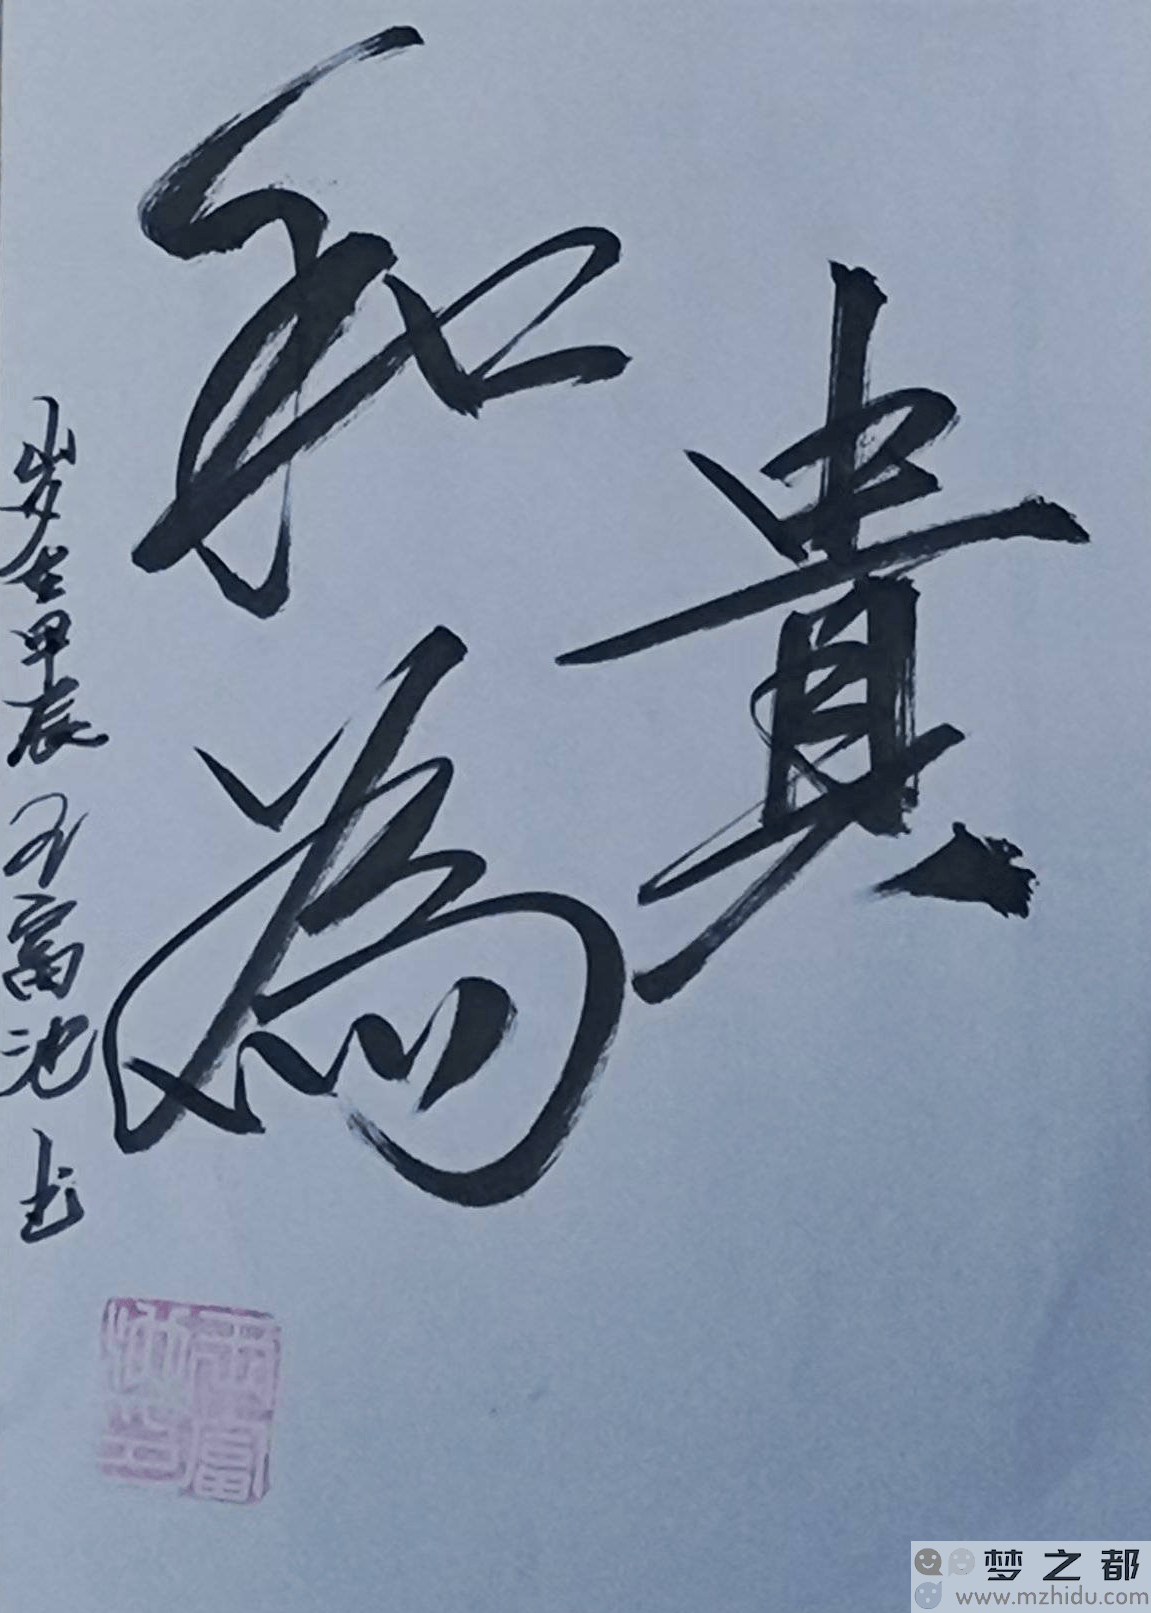 和為
貴
岁在甲辰 富池书
富
梦之都
www.mzhidu.com